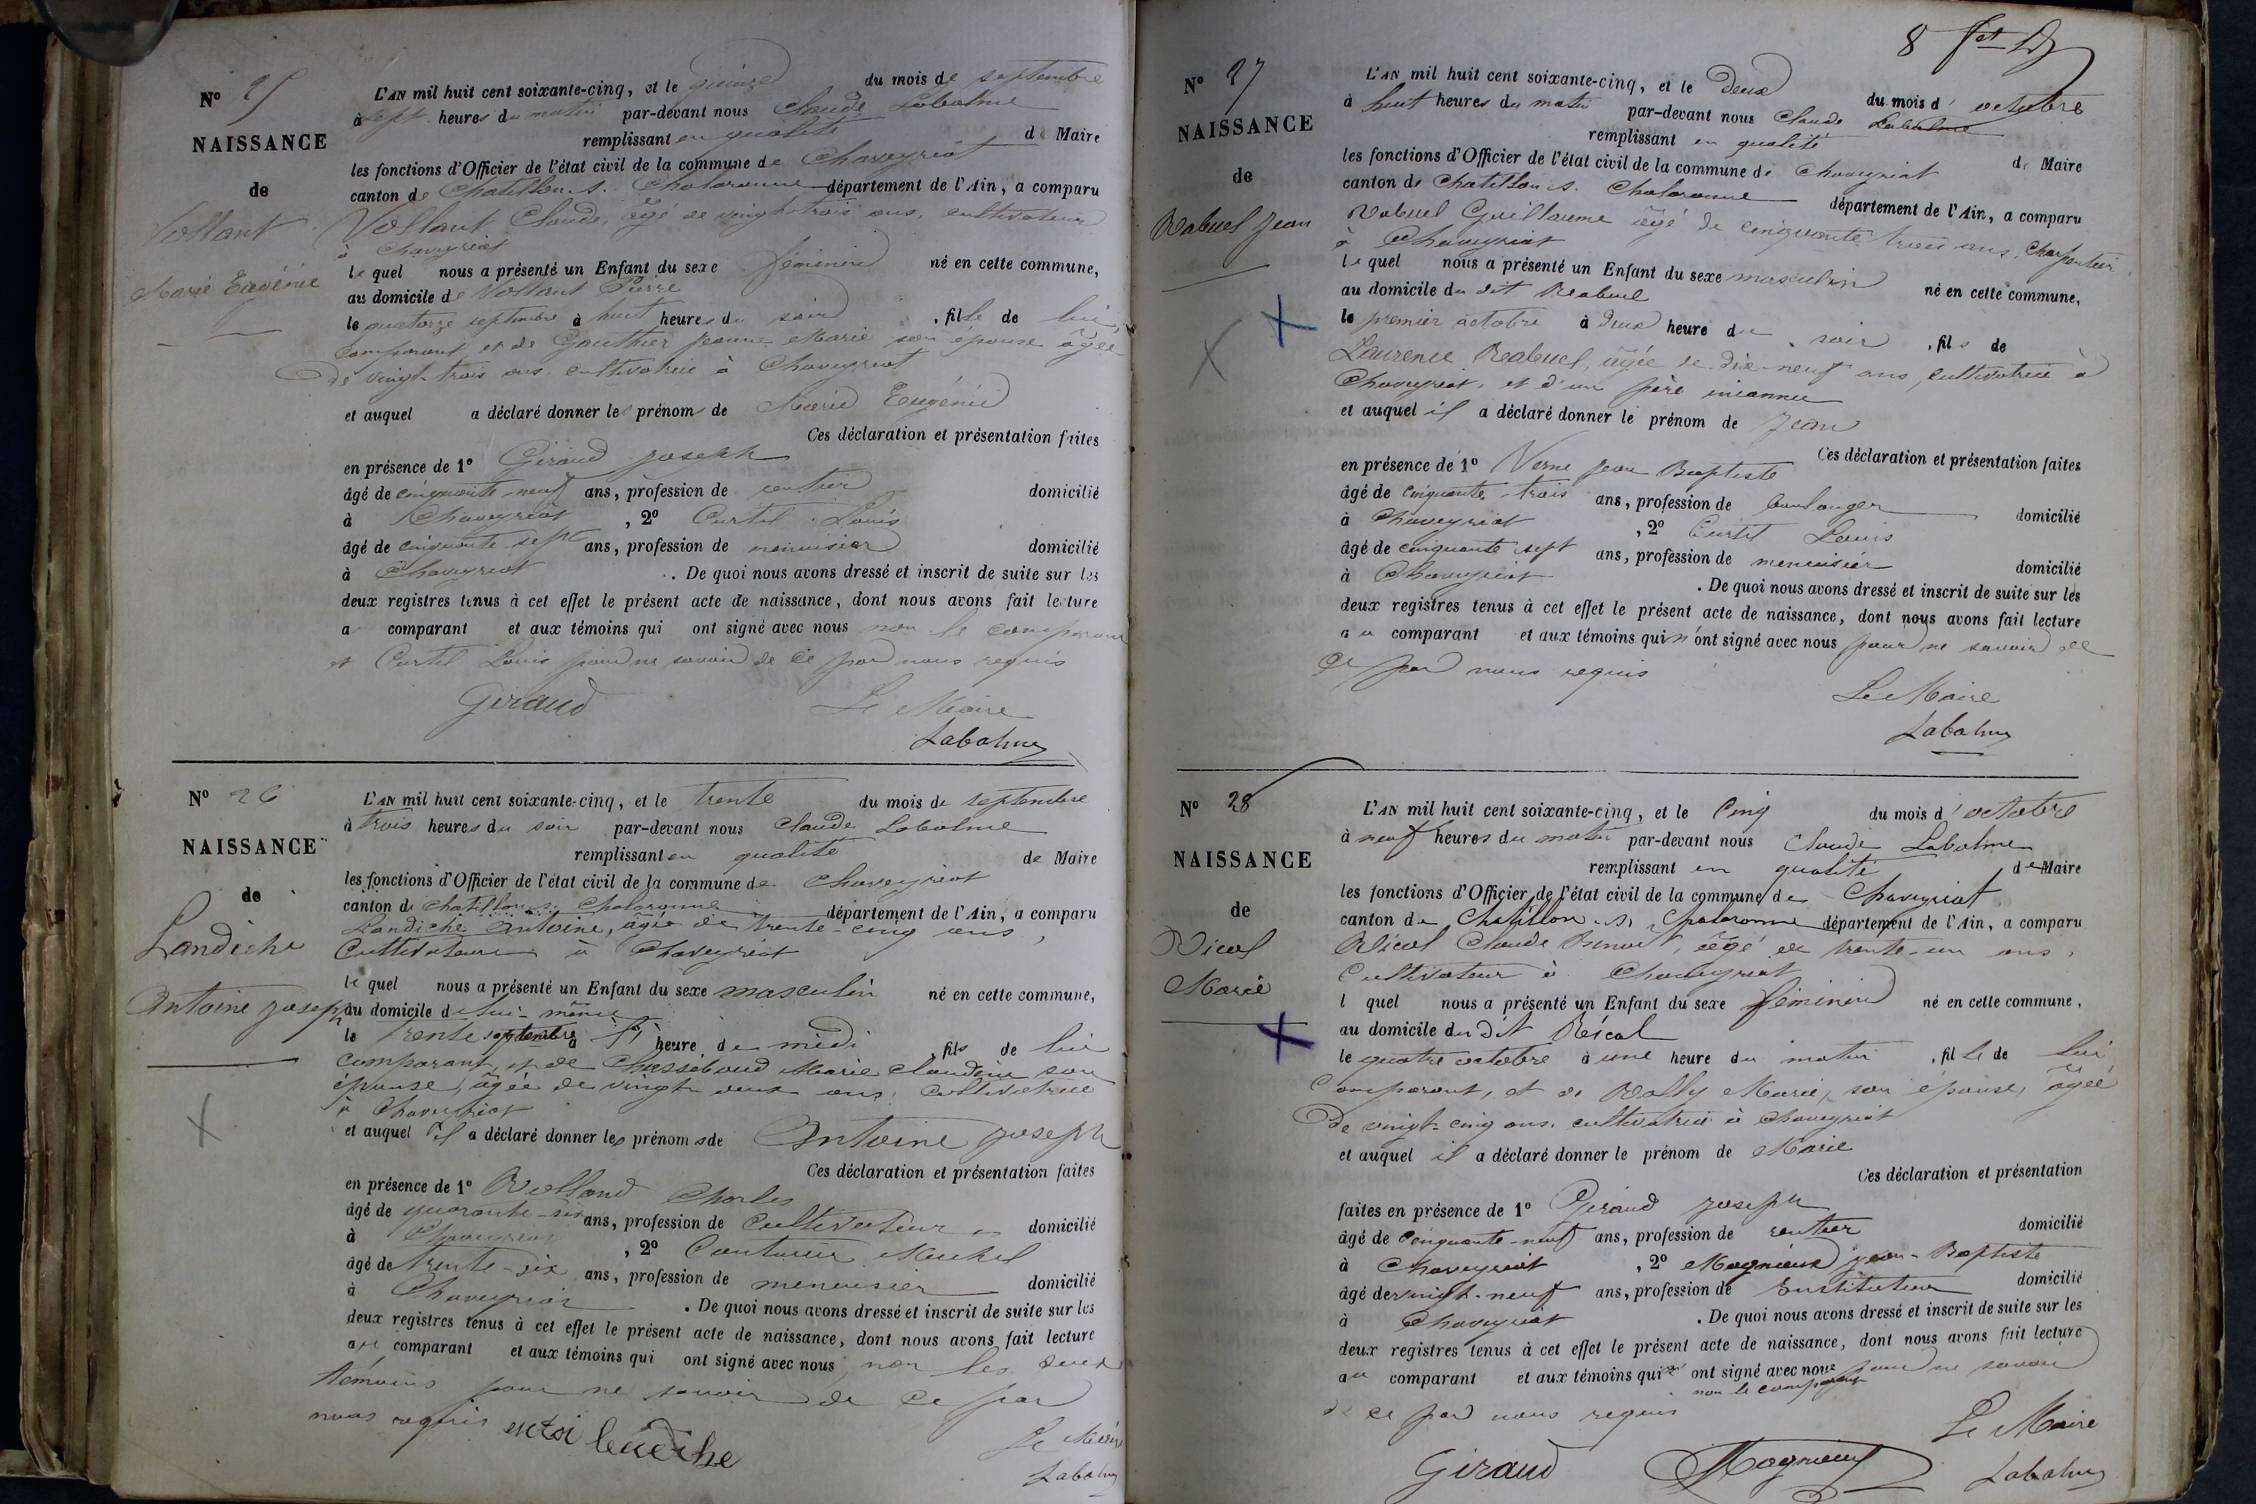 N° 25
NAISSANCE
de
Vollant
Marie Eugénie
L'AN mil huit cent soixante-cinq, et le quinze du mois de septembre
à sept heures du matin par-devant nous Claude Labalme
remplissant en qualité de Maire
les fonctions d'Officier de l'état civil de la commune de Chaveyriat
canton de Chatillon s. Chalaronne département de l'Ain, a comparu
Vollant Claude, âgé de vingt-trois ans, cultivateur
à Chaveyriat
lequel nous a présenté un Enfant du sexe féminin né en cette commune,
au domicile de Vollant Pierre
le quatorze septembre à huit heures du soir, fille de lui
comparant et de Gauthier Jeanne Marie son épouse âgée
de vingt-trois ans, cultivatrice à Chaveyriat
et auquel a déclaré donner les prénoms de Marie Eugénie
Ces déclaration et présentation faites
en présence de 1° Giraud Joseph
âgé de cinquante-neuf ans, profession de rentier domicilié
à Chaveyriat, 2° Curtil Louis
âgé de cinquante-sept ans, profession de menuisier domicilié
à Chaveyriat. De quoi nous avons dressé et inscrit de suite sur les
deux registres tenus à cet effet le présent acte de naissance, dont nous avons fait lecture
a comparant et aux témoins qui ont signé avec nous non le comparant
et Curtil Louis pour ne savoir de ce par nous requis
Giraud Le Maire
Labalme
N° 26
NAISSANCE
de
Landiche
Antoine Joseph
L'AN mil huit cent soixante-cinq, et le trente du mois de septembre
à trois heures du soir par-devant nous Claude Labalme
remplissant en qualité de Maire
les fonctions d'Officier de l'état civil de la commune de Chaveyriat
canton de Chatillon s. Chalaronne département de l'Ain, a comparu
Landiche Antoine, âgé de trente-cinq ans,
cultivateur à Chaveyriat
lequel nous a présenté un Enfant du sexe masculin né en cette commune,
au domicile de lui-même
le trente septembre à heure de midi, fils de lui
comparant, et de Chasseboud Marie Claudine son
épouse, âgée de vingt deux ans, cultivatrice
à Chaveyriat
et auquel il a déclaré donner les prénoms de Antoine Joseph
Ces déclaration et présentation faites
en présence de 1° Rolland Charles
âgé de quarante-six ans, profession de cultivateur domicilié
à Chaveyriat, 2° Couturier Michel
âgé de trente-six ans, profession de menuisier domicilié
à Chaveyriat. De quoi nous avons dressé et inscrit de suite sur les
deux registres tenus à cet effet le présent acte de naissance, dont nous avons fait lecture
au comparant et aux témoins qui ont signé avec nous, non les deux
témoins pour ne savoir de ce par
nous requis
Le Maire
Labalme
8
N° 27
NAISSANCE
de
Rabuel Jean
L'AN mil huit cent soixante-cinq, et le deux du mois d'octobre
à huit heures du matin par-devant nous Claude Labalme
remplissant en qualité de Maire
les fonctions d'Officier de l'état civil de la commune de Chaveyriat
canton de Chatillon s. Chalaronne département de l'Ain, a comparu
Rabuel Guillaume âgé de cinquante trois ans, charpentier
à Chaveyriat
lequel nous a présenté un Enfant du sexe masculin né en cette commune,
au domicile du dit Rabuel
le premier octobre à deux heure du soir, fils de
Laurence Rabuel, âgée de dix-neuf ans, cultivatrice à
Chaveyriat, et d'un père inconnu
et auquel il a déclaré donner le prénom de Jean
Ces déclaration et présentation faites
en présence de 1° Verne Jean Baptiste
âgé de cinquante-trois ans, profession de boulanger domicilié
à Chaveyriat, 2° Curtil Louis
âgé de cinquante sept ans, profession de menuisier domicilié
à Chaveyriat. De quoi nous avons dressé et inscrit de suite sur les
deux registres tenus à cet effet le présent acte de naissance, dont nous avons fait lecture
au comparant et aux témoins qui n'ont signé avec nous pour ne savoir de
ce par nous requis
Le Maire
Labalme
N° 28
NAISSANCE
de
Nicol
Marie
L'AN mil huit cent soixante-cinq, et le cinq du mois d'octobre
à neuf heures du matin par-devant nous Claude Labalme
remplissant en qualité de Maire
les fonctions d'Officier de l'état civil de la commune de Chaveyriat
canton de Chatillon s. Chalaronne département de l'Ain, a comparu
Claude Benoit, âgé de trente-un ans,
cultivateur à Chaveyriat
l quel nous a présenté un Enfant du sexe féminin né en cette commune,
au domicile du dit
le quatre octobre à une heure du matin, fille de lui
comparant, et de Marie, son épouse, âgée
de vingt-cinq ans, cultivatrice à Chaveyriat
et auquel il a déclaré donner le prénom de Marie
Ces déclaration et présentation
faites en présence de 1° Giraud Joseph
âgé de cinquante-neuf ans, profession de rentier domicilié
à Chaveyriat, 2° Magnieux Jean-Baptiste
âgé de vingt-neuf ans, profession de Instituteur domicilié
à Chaveyriat. De quoi nous avons dressé et inscrit de suite sur les
deux registres tenus à cet effet le présent acte de naissance, dont nous avons fait lecture
au comparant et aux témoins qui ont signé avec nous pour ne savoir
non le comparant
de ce par nous requis
Le Maire
Giraud Magnieux Labalme